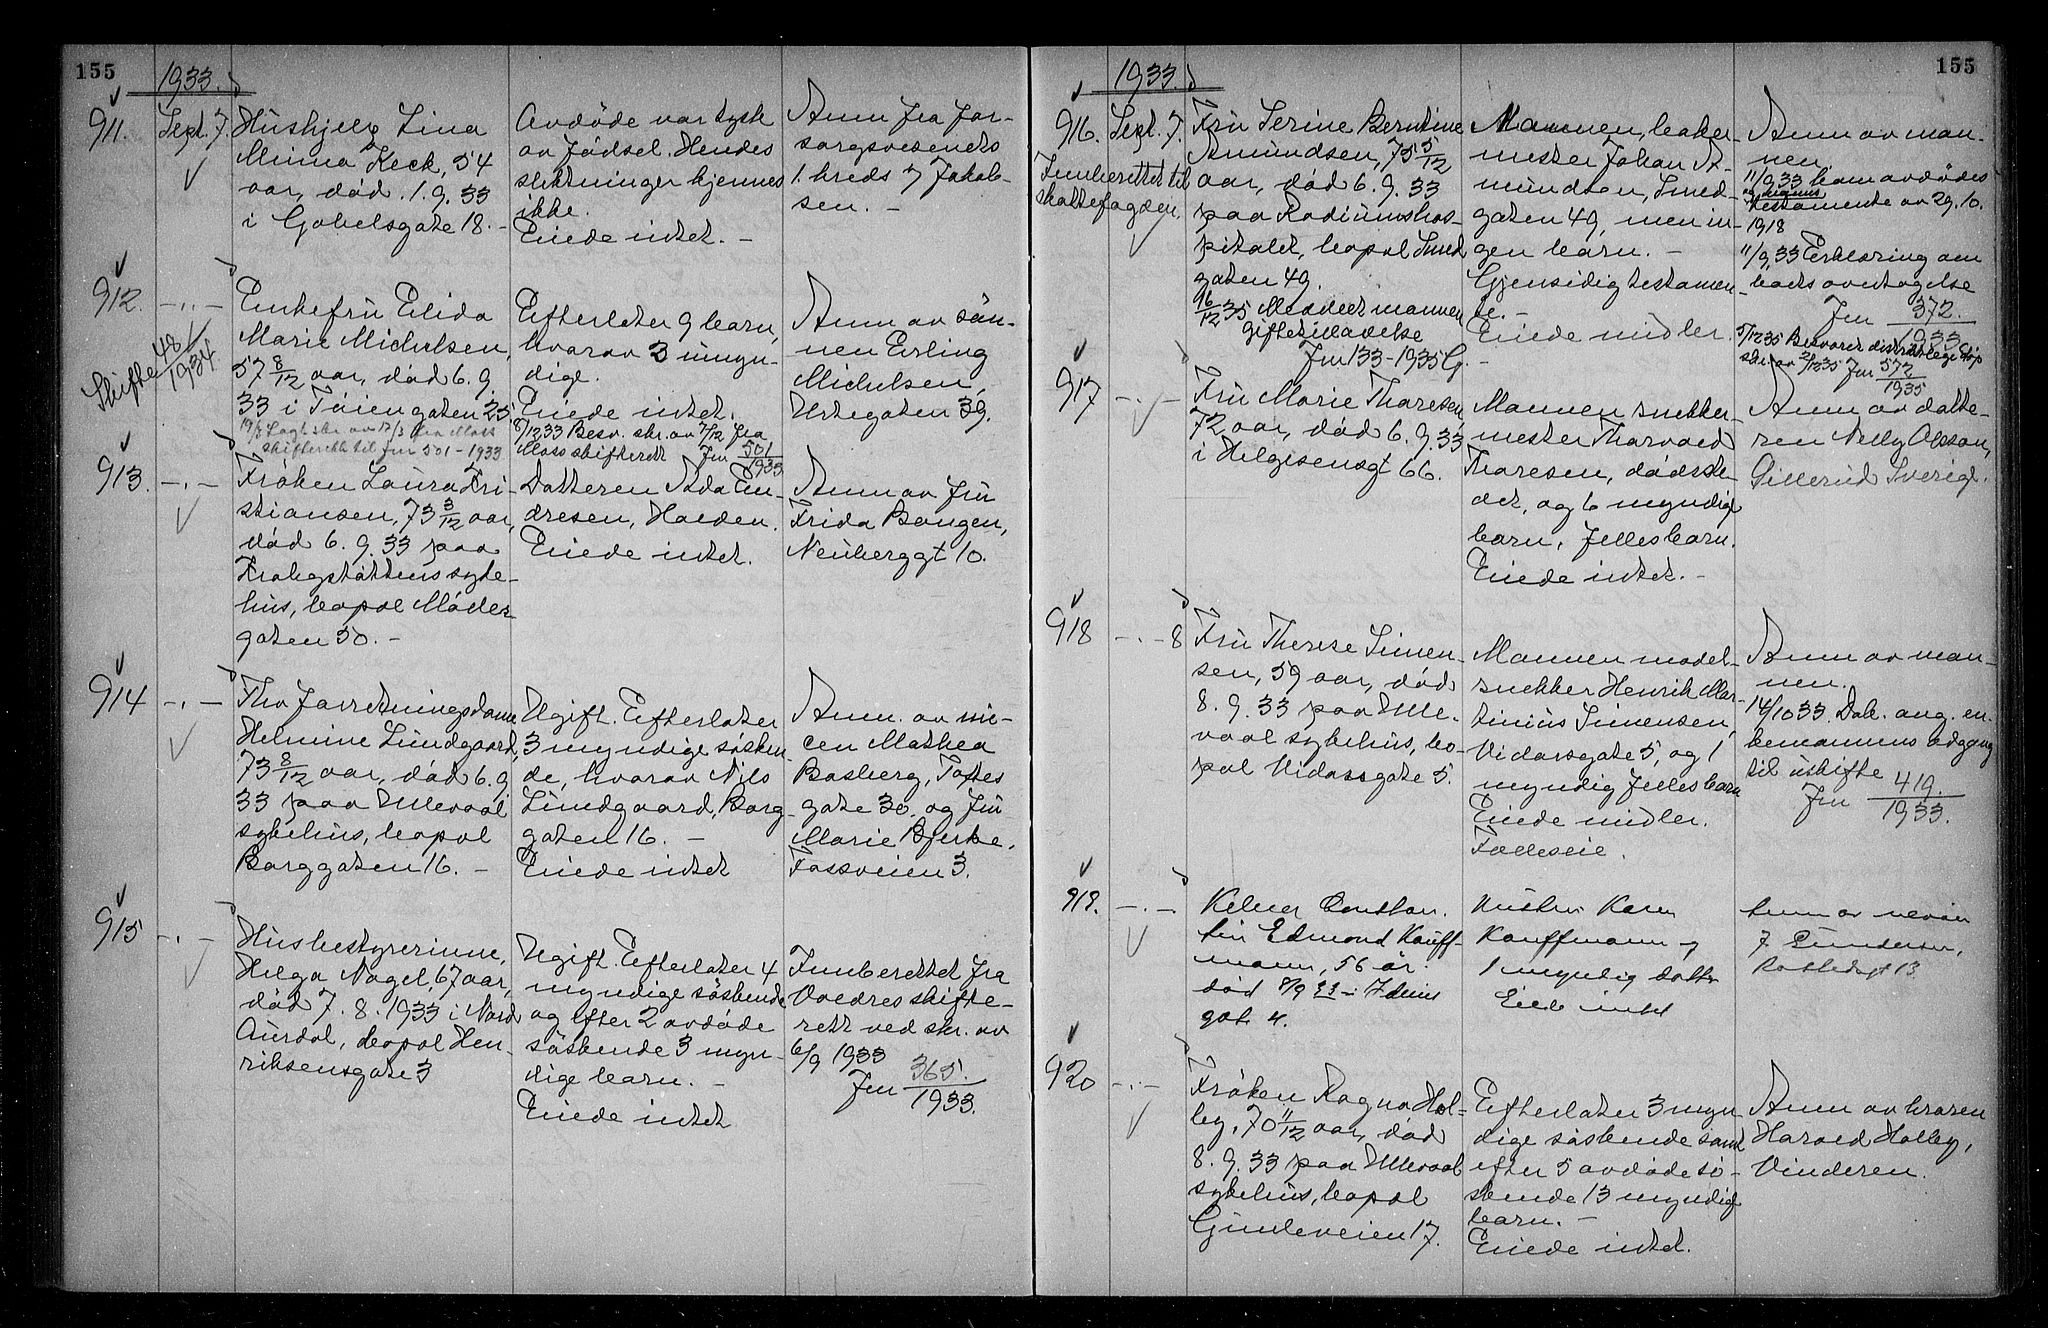 155
1933.
911. Sept. 7.
Hushjelp Lina
Minna Keck, 54
aar, død 1. 9. 33
i Gabelsgate 18. -
Avdøde var tysk
av fødsel. Hendes
slektninger kjennes
ikke.
Eiede intet. -
Anm fra For-
sorgsvesenets
1. kreds v Jakob-
sen. -
912. - " -
Skifte 48/1934
Enkefru Elida
Marie Michelsen,
57 8/12 aar, død 6. 9.
33 i Tøiengaten 25.
19/3 Fagt skr. av 17/3 fra Moss
skifterett til Jnr 501 - 1933
Efterlater 9 barn,
hvorav 3 umyn-
dige.
Eiede intet.
8/12 33 Besv. skr. av 7/12 fra
Moss skifterett Jnr 501/1933
Anm av søn-
nen Erling
Michelsen,
Urtegaten 39.
913. - " -
Frøken Laura Kri-
stiansen, 73 3/12 aar,
død 6. 9. 33 paa
Krohgstøttens syke-
hus, bopel Møller-
gaten 50. -
Datteren Ada En-
dresen, Halden.
Eiede intet.
Anm av fru
Frida Bangen,
Neuberggt 10.
914 - " -
Fhv forretningsdame
Helmine Lundgaard,
73 8/12 aar, død 6. 9.
33 paa Ulleval
sykehus, bopel
Borggaten 16. -
Ugift. Efterlater
3 myndige søsken-
de, hvorav Nils
Lundgaard, Borg-
gaten 16. -
Eiede intet
Anm. av nie-
cen Mathea
Basberg, Toftes
gate 30, og fru
Marie Bjerke,
Fossveien 3.
915 - " -
Husbestyrerinne,
Helga Nagel, 67 aar,
død 7. 8. 1933 i Nord
Aurdal, bopel Hen-
riksensgate 3
Ugift. Efterlater 4
myndige søskende
og efter 2 avdøde
søskende 3 myn-
dige barn. -
Eiede intet
Innberettet fra
Valdres skifte-
rett ved skr. av
6/9 1933
Jnr 365./1933.
155
1933.
916. Sept. 7.
Innberettet til
skattefogden.
Fru Serine Berntine
Amundsen, 75 5/12
aar, død 6. 9. 33
paa Radiumshos-
pitalet, bopel Smed
gaten 49.
16/12 35 Meddelt mannen
giftetilladelse
Jnr 133 - 1935 G.
Mannen, baker-
mester Johan A-
mundsen, Smed-
gaten 49, men in-
gen barn. -
Gjensidig testamen-
te. -
Eiede midler.
-
Anm av man-
nen.
11/9 33 kom avdødes
og mannens
testamente av 29. 10.
1918
11/9 33 Erklæring om
boets overtagelse
Jnr 372./1933
5/12 35 Besvaret
skr av 3/12 35 Jnr 572/1935
917 - " -
Fru Marie Thoresen,
72 aar, død 6. 9. 33
i Helgesensgt 66.
Mannen snekker-
mester Thorvald
Thoresen, dødsste-
det, og 6 myndige
barn, fellesbarn.
Eiede intet. -
Anm av datte-
ren Nelly Olsson,
Gillerud Sverige.
918 - " - 8
Fru Therese Simen-
sen, 59 aar, død
8. 9. 33 paa Ulle-
vaal sykehus, bo-
pel Vidarsgate 5.
Mannen model-
snekker Henrik Mar-
tinius Simensen,
Vidarsgate 5, og 1
myndig fellesbarn
Eiede midler.
Fælleseie.
Anm av man-
nen.
14/10 33. Dok. ang. en-
kemannens adgang
til uskifte
Jnr 419./1933.
919. - " -
Kelner Constan-
tin Edmond Kauff-
mann, 56 år.
død 8/9 33 i Iduns
gat. 4.
Hustru Karen
Kauffmann og
1 myndig datter
Eiede intet
Anm av nevøen
J. Gundersen,
920 - " -
Frøken Ragna Hol-
by, 70 11/12 aar, død
8. 9. 33 paa Ulleval
sykehus, bopel
Gimleveien 17.
Efterlater 3 myn-
dige søskende samt
efter 5 avdøde sø-
skende 13 myndige
barn. -
Eiede intet.
Anm av broren
Harald Holby,
Vinderen.